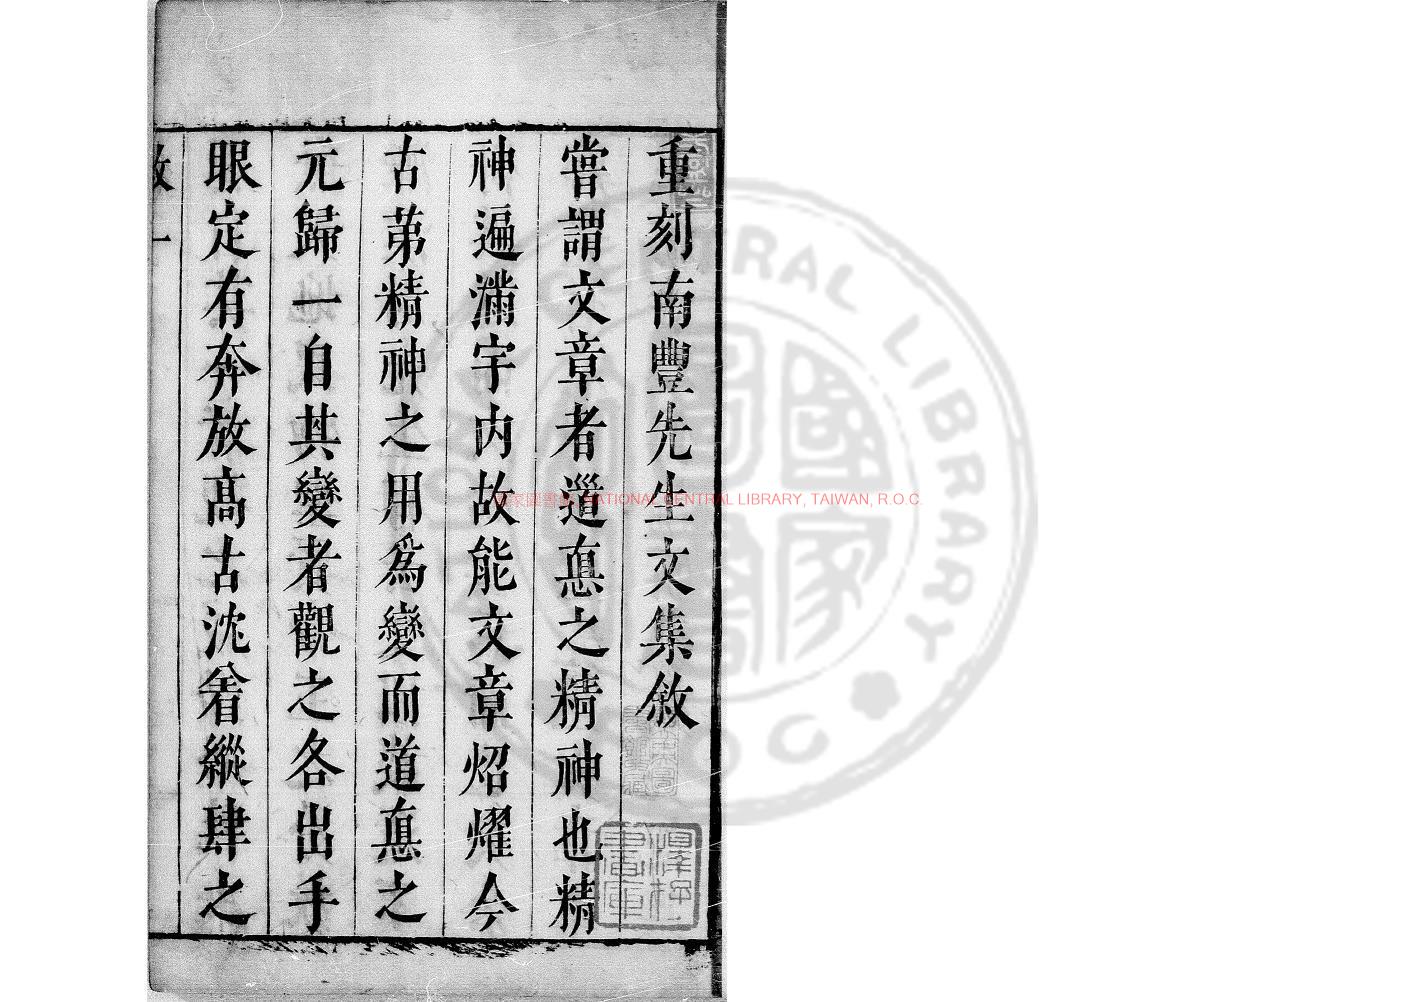 重刻南豐先生文集敘
嘗謂文章者道悳之精神也精
神遍滿宇內故能文章炤燿今
古苐精神之用為變而道悳之
元歸一自其變者觀之各出手
眼定有奔放高古沈着縱肆之
敘一
國家圖書館 NATIONAL CENTRAL LIBRARY, TAIWAN, R.O.C.